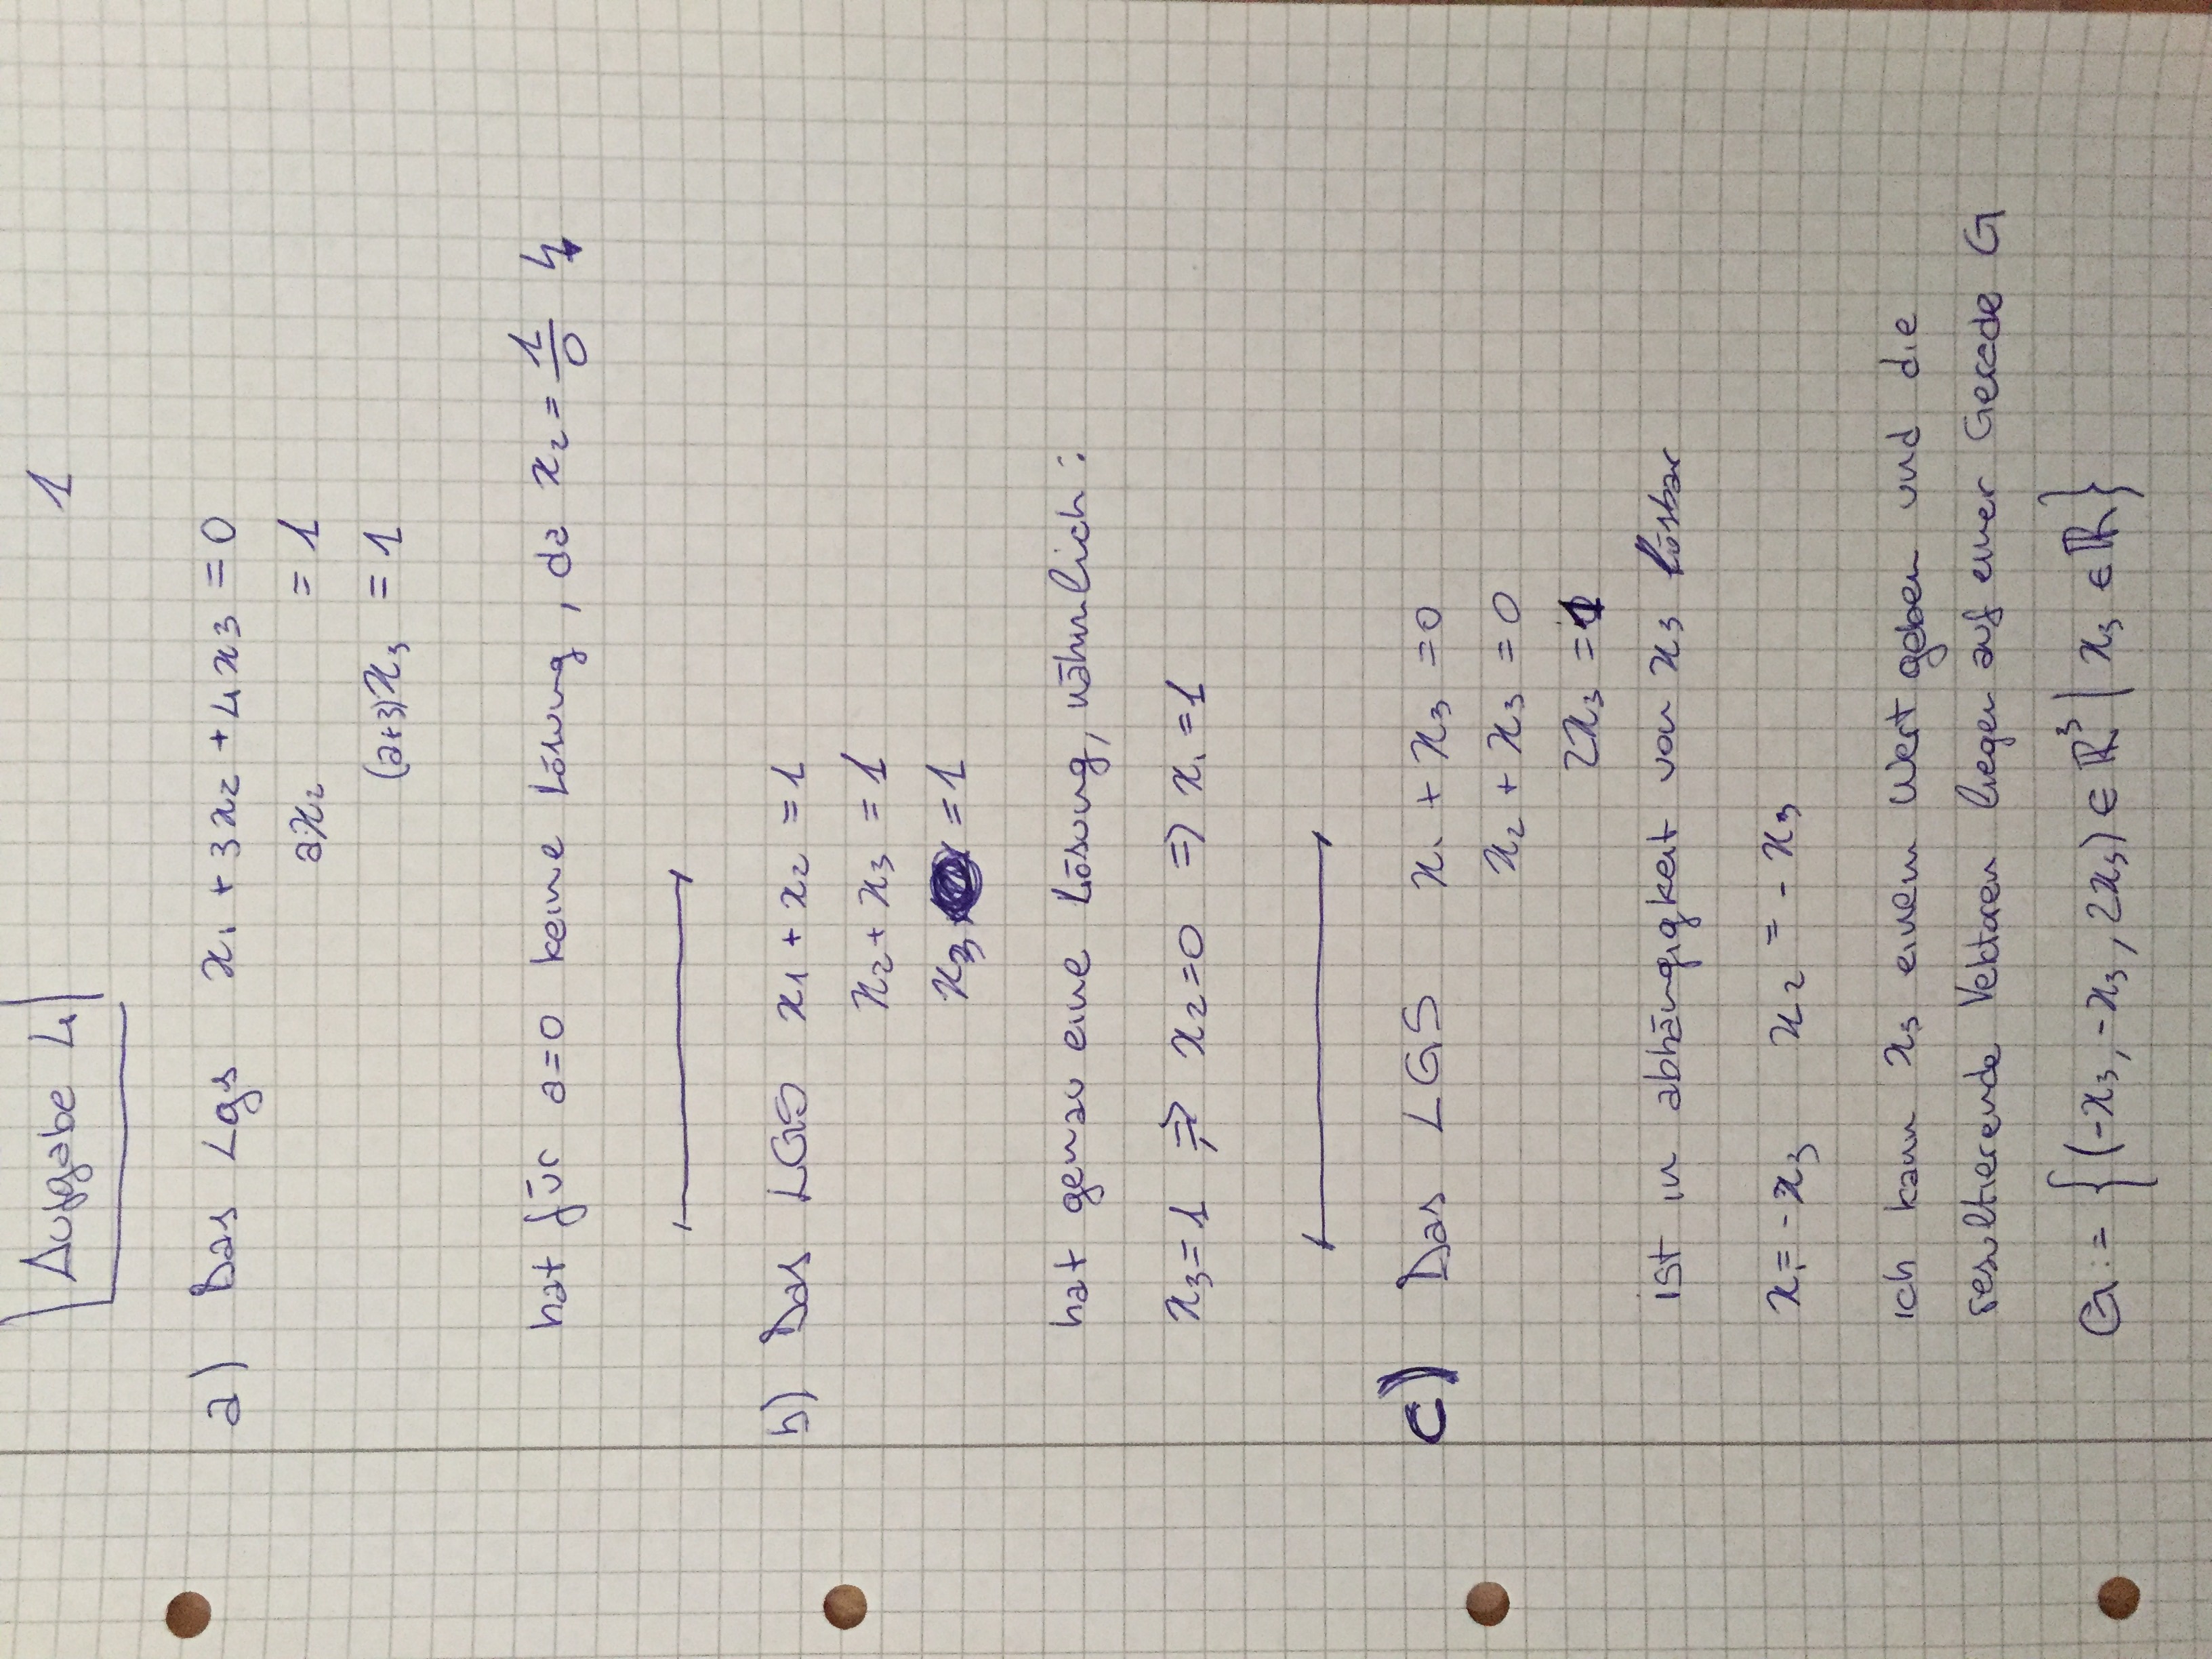 Aufgabe 4
1
a) Das Lgs x₁ + 3x₂ + 4x₃ = 0
ax₂ = 1
(a+3)x₃ = 1
hat für a=0 keine Lösung, da x₂ = 1/0 ↯
b) Das LGS x₁ + x₂ = 1
x₂ + x₃ = 1
x₃ = 1
hat genau eine Lösung, nähmlich:
x₃ = 1 ⇒ x₂ = 0 ⇒ x₁ = 1
c) Das LGS x₁ + x₃ = 0
x₂ + x₃ = 0
2x₃ = 1
ist in abhängigkeit von x₃ lösbar
x₁ = -x₃ x₂ = -x₃
ich kann x₃ einem Wert geben und die
resultierende Vektoren liegen auf einer Gerade G
G := {(-x₃, -x₃, 2x₃) ∈ ℝ³ | x₃ ∈ ℝ}